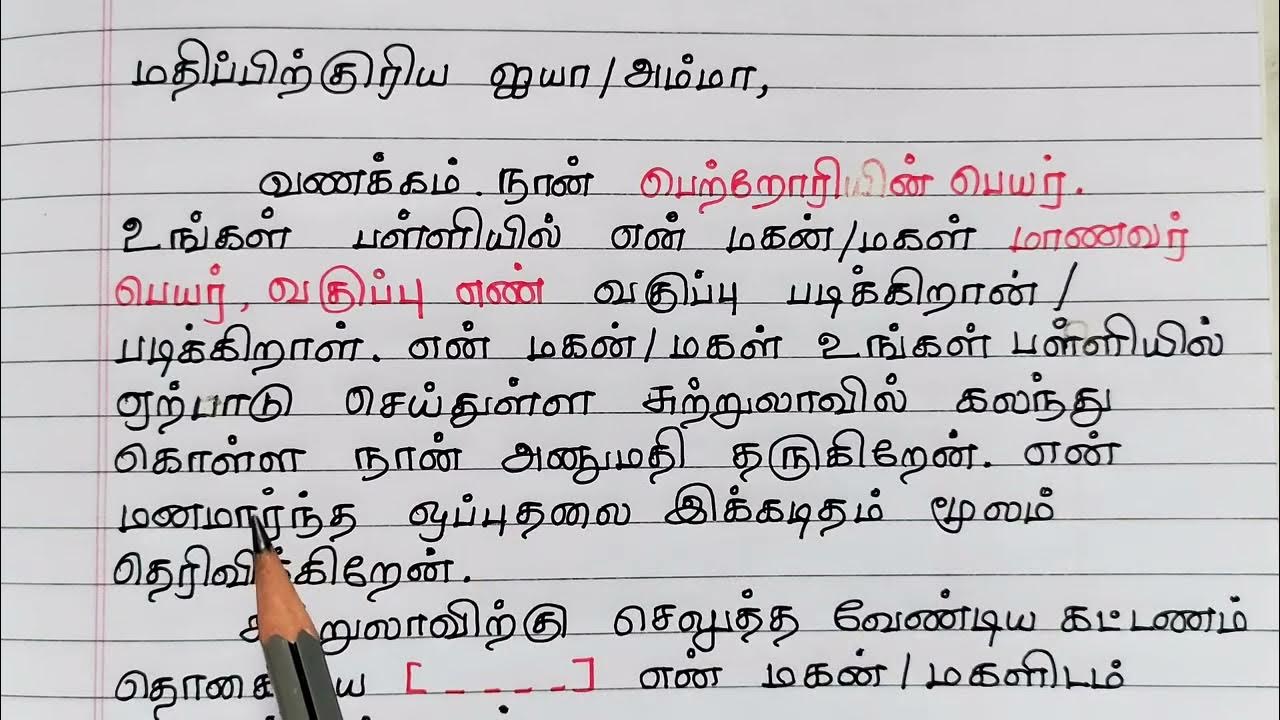 மதிப்பிற்குரிய ஐயா/அம்மா,
வணக்கம். நான் பெற்றோரியின் பெயர்.
உங்கள் பள்ளியில் என் மகன்/மகள் மாணவர்
பெயர், வகுப்பு எண் வகுப்பு படிக்கிறான்/
படிக்கிறாள். என் மகன்/மகள் உங்கள் பள்ளியில்
ஏற்பாடு செய்துள்ள சுற்றுலாவில் கலந்து
கொள்ள நான் அனுமதி தருகிறேன். என்
மனமார்ந்த ஒப்புதலை இக்கடிதம் மூலம்
தெரிவிக்கிறேன்.
செலுத்த வேண்டிய கட்டணம்
[ _ _ _ _ ] என் மகன்/மகளிடம்